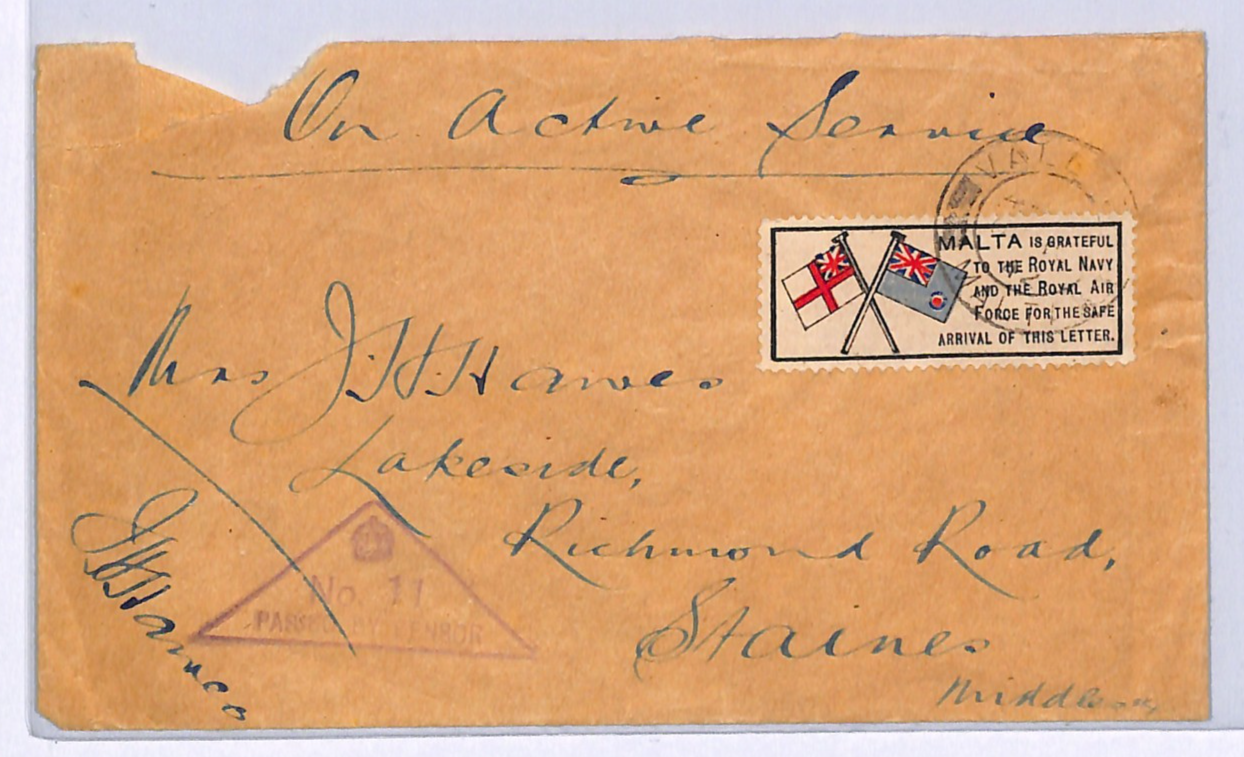 On Active Service
VALL
MALTA IS GRATEFUL
TO THE ROYAL NAVY
AND THE ROYAL AIR
FORCE FOR THE SAFE
ARRIVAL OF THIS LETTER.
Mrs J.H. Hawes
Lakeside,
Richmond Road,
Staines
Middlesex
No. 11
PASSED BY CENSOR
JH Hawes